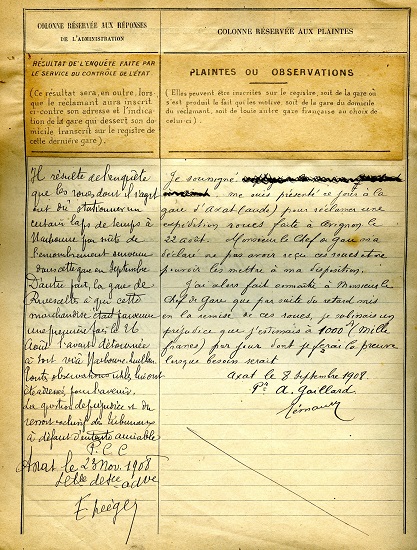 COLONNE RÉSERVÉE AUX RÉPONSES
DE L'ADMINISTRATION
RÉSULTAT DE L'ENQUÊTE FAITE PAR
LE SERVICE DU CONTRÔLE DE L'ÉTAT
(Ce résultat sera, en outre, lors
que le réclamant aura inscrit
ci-contre son adresse et l'indica
tion de la gare qui dessert son do
micile transcrit sur le registre de
cette dernière gare).
Il résulte de l'enquête
que les roues dont il s'agit
ont dû stationner un
certain laps de temps à
Narbonne par suite de
l'encombrement survenu
dans cette gare en Septembre
D'autre part, la gare de
à qui cette
marchandise était parvenue
une première fois le 26
Août l'avait détournée
à tort
Toutes observations utiles lui ont
été adressées pour l'avenir.
La question de préjudice est du
ressort exclusif des tribunaux
à défaut d'entente amiable
P.C.C
Axat le 23 Nov. 1908
COLONNE RÉSERVÉE AUX PLAINTES
PLAINTES OU OBSERVATIONS
(Elles peuvent être inscrites sur le registre, soit de la gare où
s'est produit le fait qui les motive, soit de la gare du domicile
du réclamant, soit de toute autre gare française au choix de
celui-ci.)
Je soussigné
me suis présenté ce jour à la
gare d'Axat (Aude) pour réclamer une
expédition roues faite à Avignon le
22 août. Monsieur le Chef de Gare m'a
déclaré ne pas avoir reçu ces roues et ne
pouvoir les mettre à ma disposition.
J'ai alors fait connaître à Monsieur le
Chef de Gare que par suite du retard mis
en la remise de ces roues, je subissais un
préjudice que j'estimais à 1000 f (Mille
francs) par jour dont je ferais la preuve
lorsque besoin serait
Axat le 8 Septembre 1908.
Pr A. Gaillard